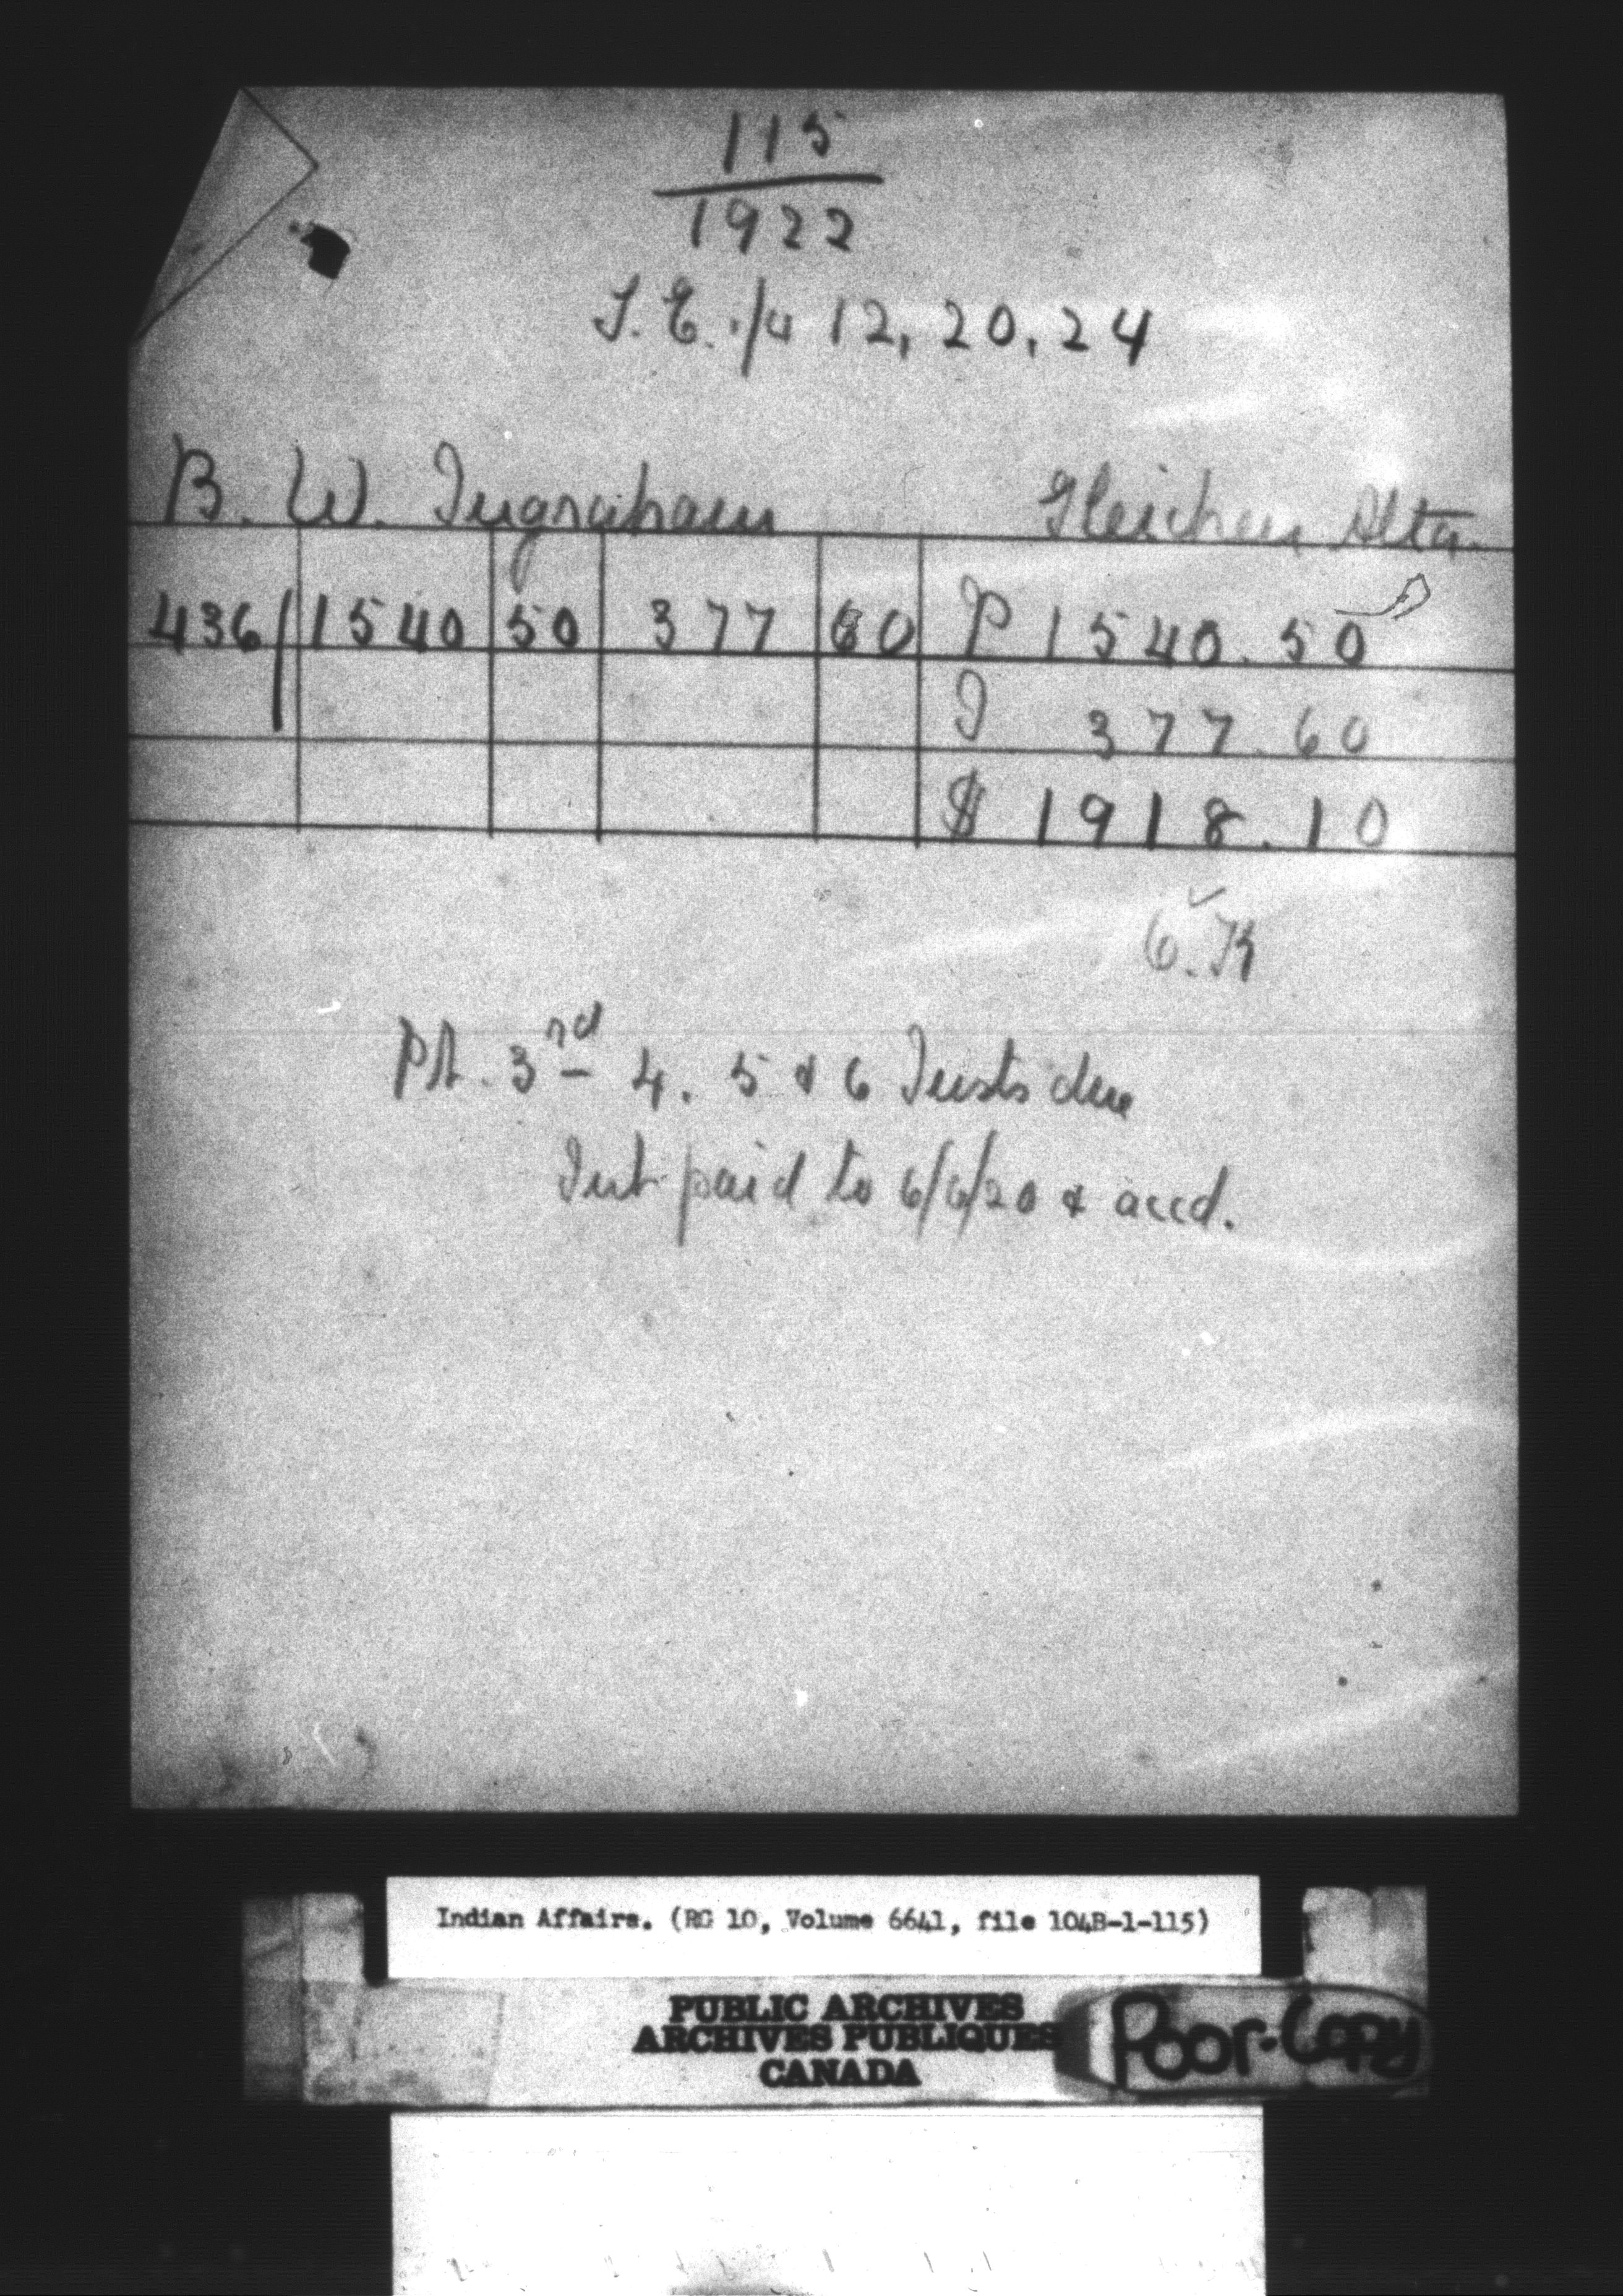 115
1922
S.E. 1/4 12, 20, 24
B. W. Ingraham Gleichen Alta.
436 1540 50 377 60 P 1540.50
I 377.60
$ 1918.10
O.K
Pt. 3rd 4. 5 & 6 Insts due
Int paid to 6/6/20 & accd.
Indian Affairs. (RG 10, Volume 6641, file 104B-1-115)
PUBLIC ARCHIVES
ARCHIVES PUBLIQUES
CANADA
Poor-Copy